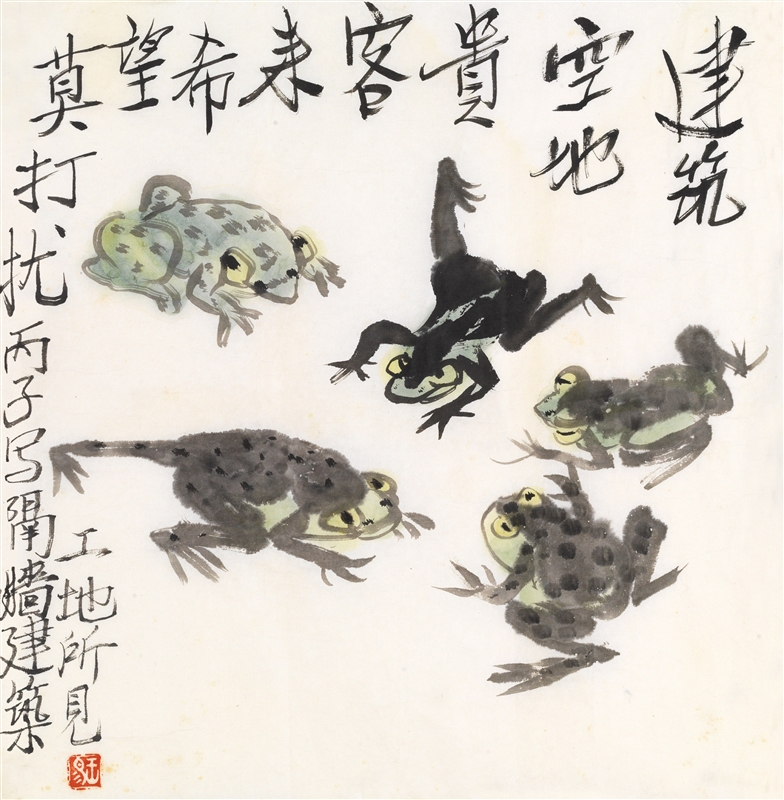 建筑
空地
貴
客
来
希
望
莫打扰丙子写隔墻建築
工地所見